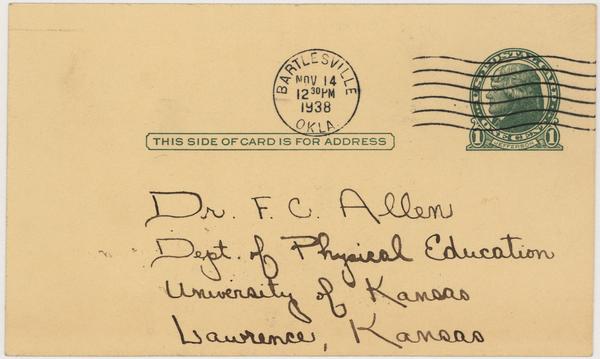 BARTLESVILLE
NOV 14
12 30 PM
1938
OKLA.
U.S. POSTAGE
1 ONE CENT 1
JEFFERSON
THIS SIDE OF CARD IS FOR ADDRESS
Dr. F. C. Allen
Dept. of Physical Education
University of Kansas
Lawrence, Kansas